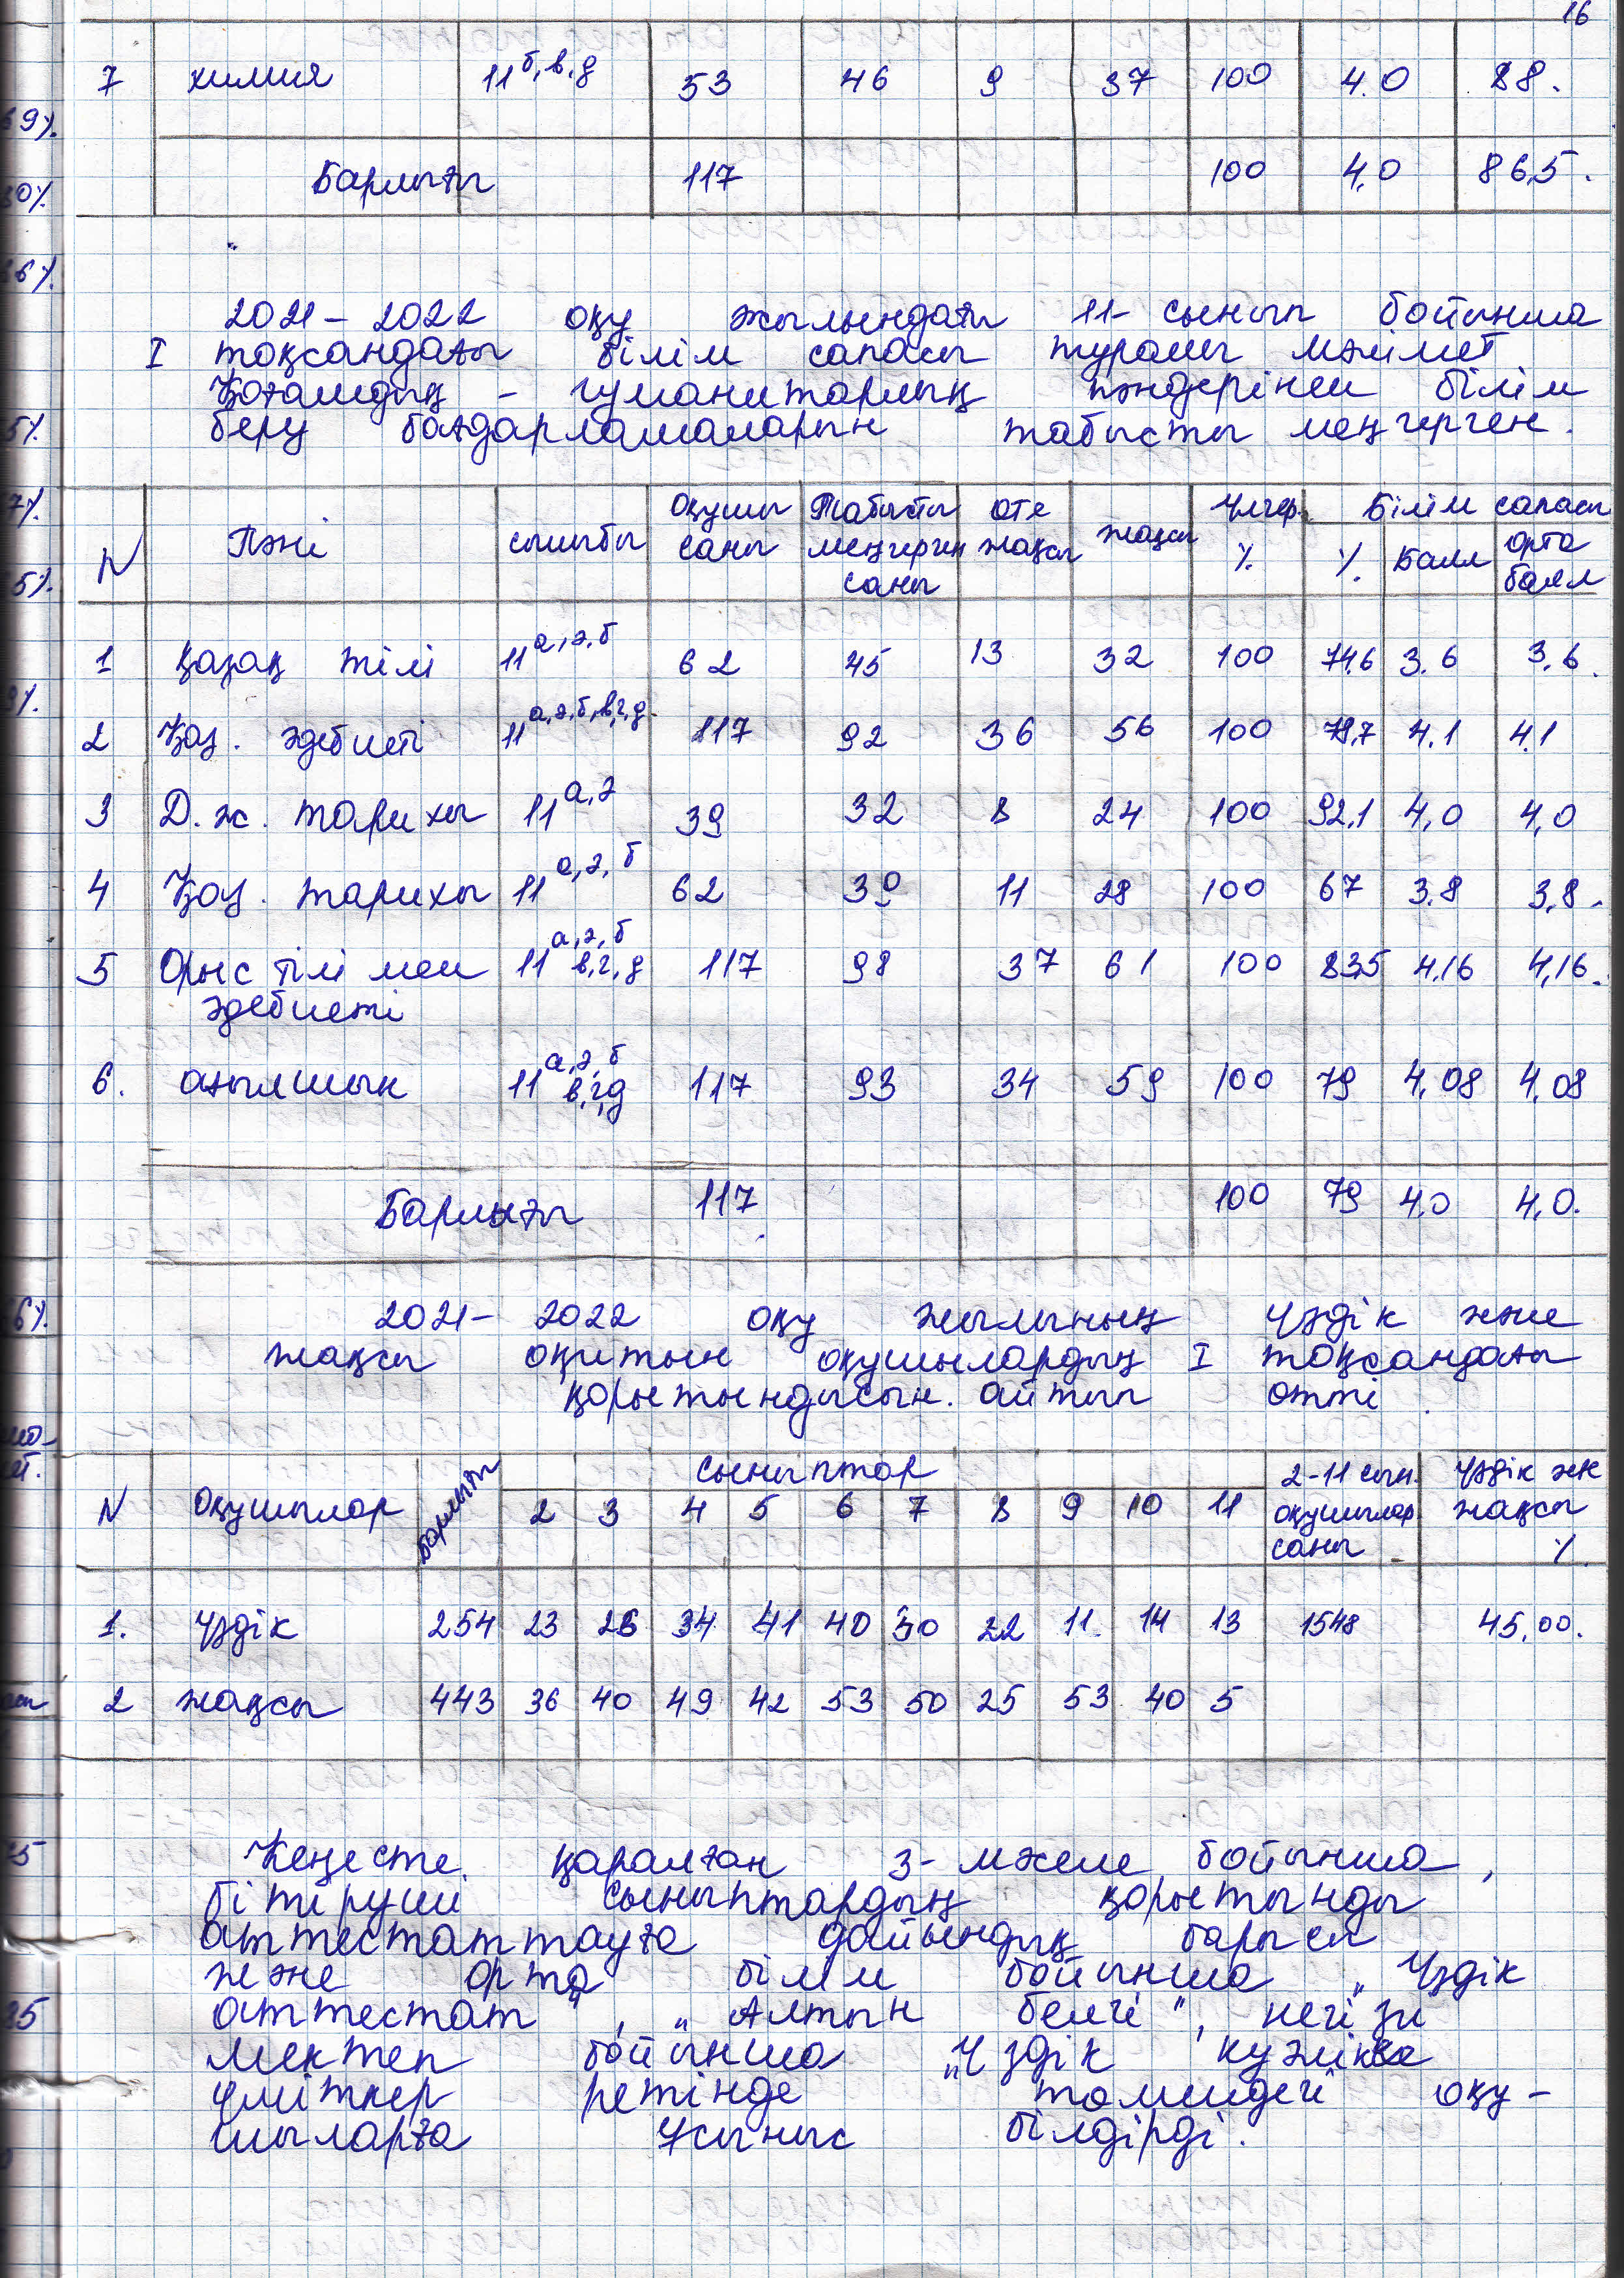 16
7 химия 11 б, в, д 53 46 9 37 100 4.0 88.
Барлығы 117 100 4,0 86,5.
2021 – 2022 оқу жылындағы 11- сынып бойынша
I тоқсандағы білім сапасы туралы мәлімет
Қоғамдық – гуманитарлық пәндерінен білім
беру бағдарламаларын табысты меңгерген.
N Пәні сыныбы Оқушы саны Табысты меңгерген саны өте жақсы жақсы Үлгер. % Білім сапасы % Балл орта балл
1 қазақ тілі 11 а, ә, б 62 45 13 32 100 74.6 3.6 3.6.
2 Қаз. әдебиеті 11 а, ә, б, в, г, д. 117 92 36 56 100 78,7 4.1 4.1
3 Д. ж. тарихы 11 а, ә 39 32 8 24 100 92,1 4,0 4,0
4 Қаз. тарихы 11 а, ә, б 62 39 11 28 100 67 3.8 3,8.
5 Орыс тілі мен 11 а, ә, б в, г, д 117 98 37 61 100 83,5 4,16 4,16.
әдебиеті
6. ағылшын 11 а, ә, б в, г, д 117 93 34 59 100 79 4,08 4,08
Барлығы 117. 100 79 4.0 4,0.
2021 – 2022 оқу жылының Үздік және
жақсы оқитын оқушылардың I тоқсандағы
қорытындысын. айтып өтті.
N Оқушылар Барлығы сыныптар 2 3 4 5 6 7 8 9 10 11 2-11 сын. оқушылар. саны Үздік жж жақсы %
1. Үздік 254 23 26 34 41 40 30 22 11 14 13 1548 45,00.
2 жақсы 443 36 40 49 42 53 50 25 53 40 5
Кеңесте қаралған 3- мәселе бойынша,
бітіруші сыныптардың қорытынды
аттестаттауға дайындық барысы
және орта білім бойынша „ Үздік
аттестат", „ Алтын белгі", негізгі
мектеп бойынша „Үздік куәлікке
үміткер ретінде төмендегі оқу –
шыларға Ұсыныс білдірді.